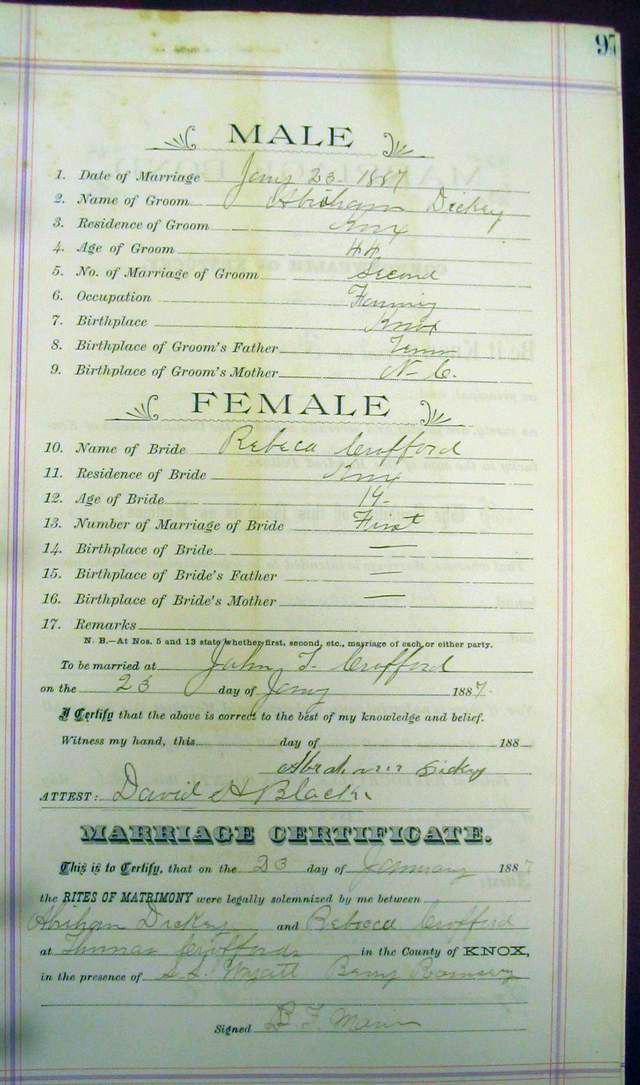 97
MALE
1. Date of Marriage Jany 23 1887
2. Name of Groom Abraham Dickey
3. Residence of Groom Knox
4. Age of Groom 44
5. No. of Marriage of Groom Second
6. Occupation Farming
7. Birthplace Knox
8. Birthplace of Groom's Father Tenn
9. Birthplace of Groom's Mother N. C.
FEMALE
10. Name of Bride Rebeca Crofford
11. Residence of Bride Knox
12. Age of Bride 19
13. Number of Marriage of Bride First
14. Birthplace of Bride —
15. Birthplace of Bride's Father —
16. Birthplace of Bride's Mother —
17. Remarks
N. B.—At Nos. 5 and 13 state whether first, second, etc., marriage of each or either party.
To be married at John T. Crofford
on the 23 day of Jany 1887.
I Certify that the above is correct to the best of my knowledge and belief.
Witness my hand, this day of 188
Abraham Dickey
ATTEST: David H Black
MARRIAGE CERTIFICATE.
This is to Certify, that on the 23 day of January 1887
the RITES OF MATRIMONY were legally solemnized by me between
Abriham Dickey and Rebecca Crofford
at Thomas Croffords in the County of KNOX,
in the presence of Wyatt Berry
Signed B. F.